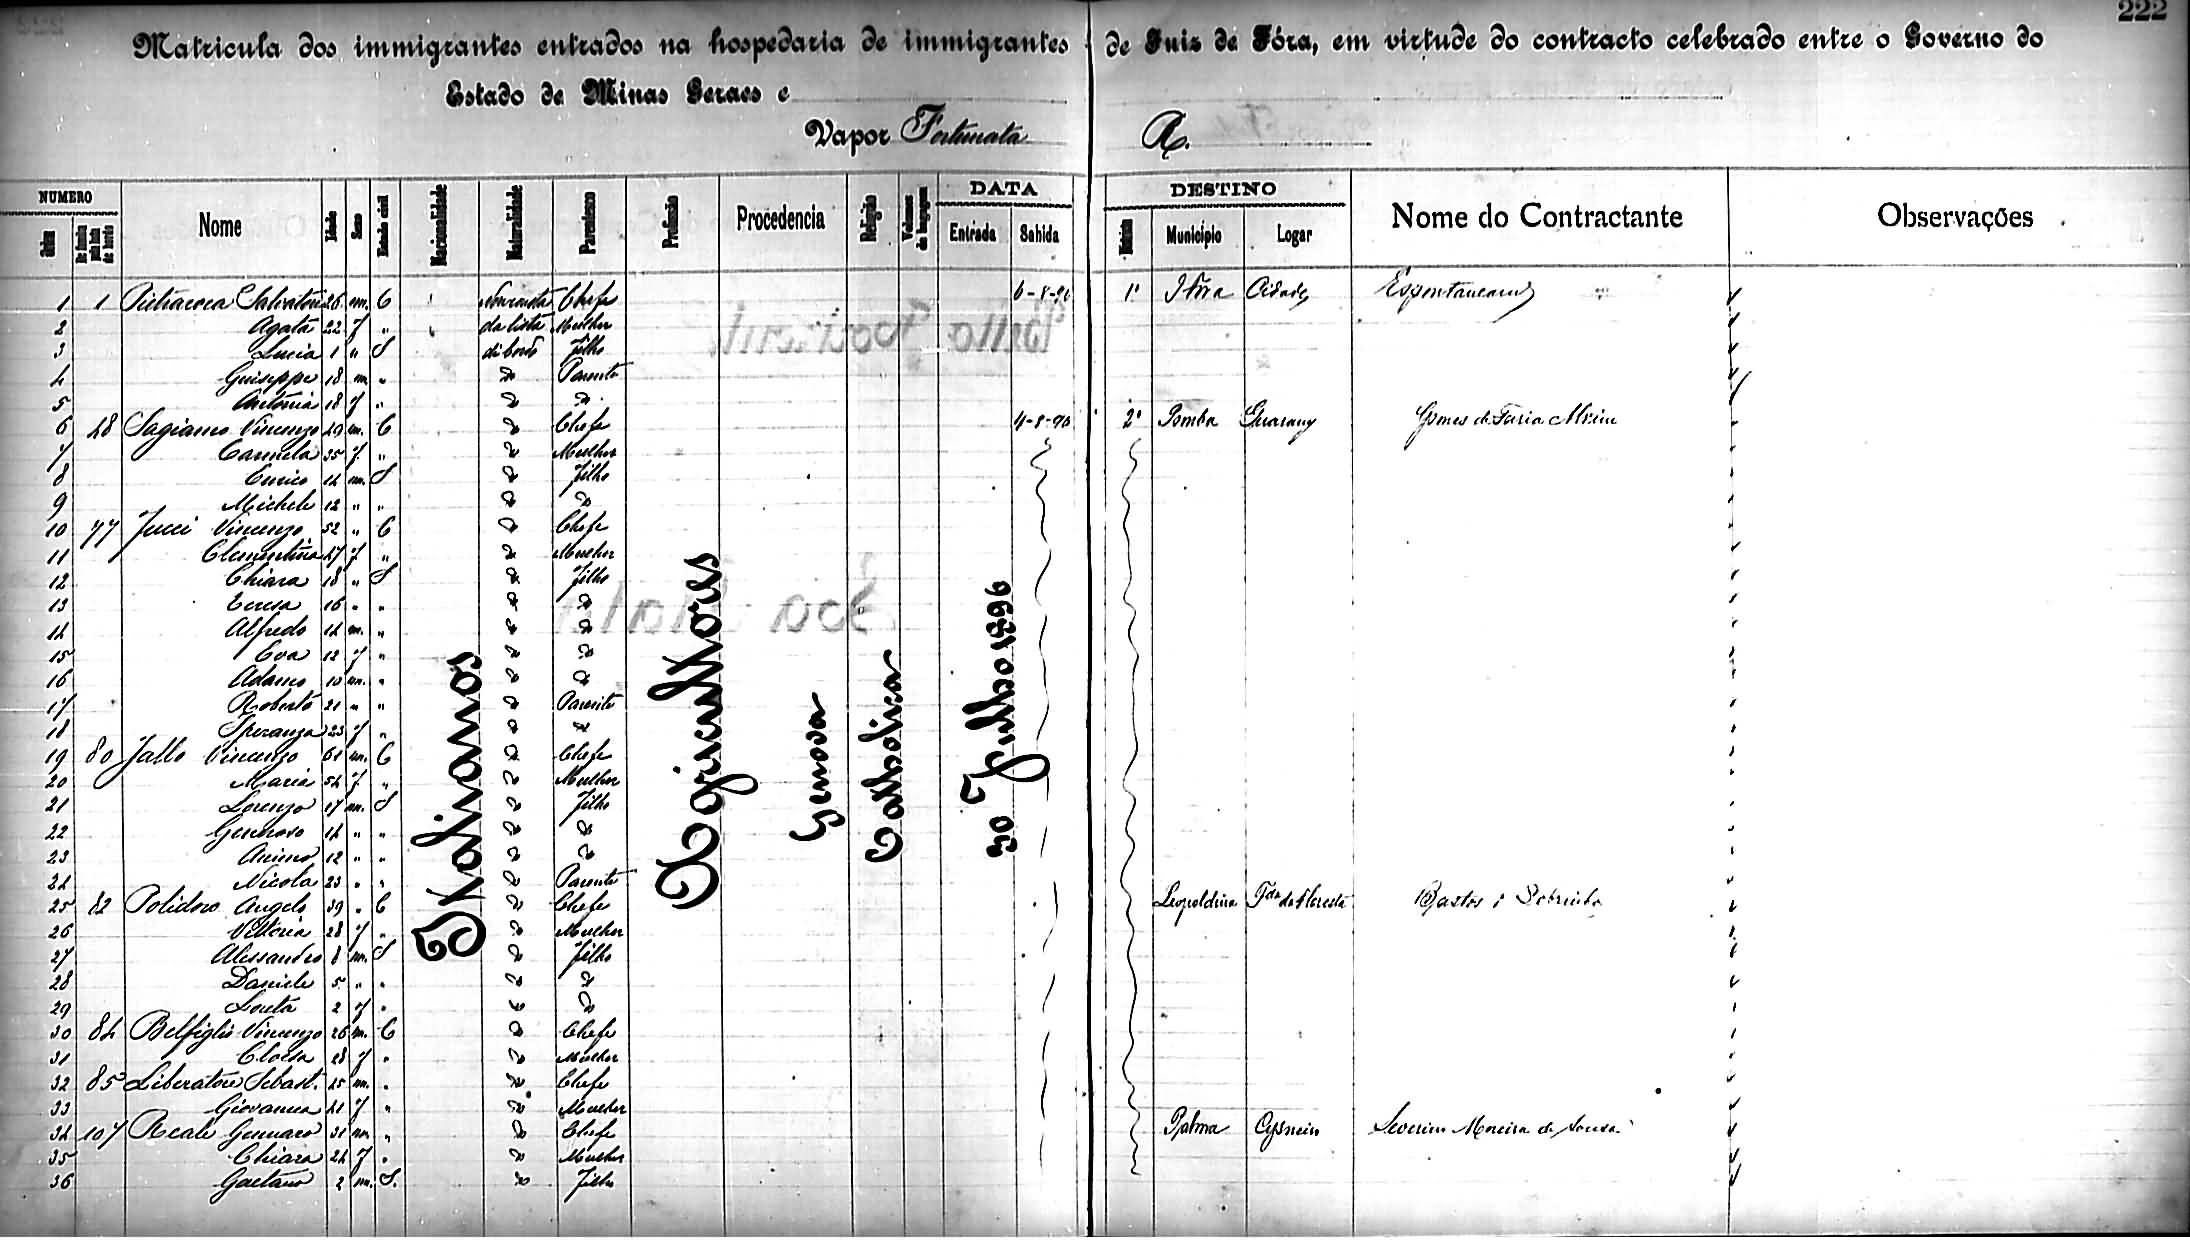 222
Matricula dos immigrantes entrados na hospedaria de immigrantes de Juiz de Fóra, em virtude do contracto celebrado entre o Governo do
Estado de Minas Geraes e
Vapor Fortunata R.
NUMERO Nome Idade Sexo Estado civil Nacionalidade Naturalidade Parentesco Profissão Procedencia Religião Volumes de bagagem DATA Entrada Sahida DESTINO Districto Municipio Logar Nome do Contractante Observações
Italianos
Agricultores
Genova
Catholica
30 Julho 1896
1 1 Salvatore 26 m. C Não consta Chefe 6-8-96 1º J Fóra Cidade Espontaneam
2 Agata 22 f " da lista Mulher
3 Lucia 1 " S de bordo Filho
4 Guiseppe 18 m. " Parente
5 Antonia 18 f "
6 48 Sagiamo Vincenzo 29 m. C Chefe 4-8-96 2º Pomba Guarany Gomes de Faria Alvim
7 Carmela 35 f. " Mulher
8 Enrico 14 m. S Filho
9 Michele 12 " "
10 77 Jucci Vincenzo 52 " C Chefe
11 Clementina 47 f " Mulher
12 Chiara 18 " S Filho
13 Teresa 16 " "
14 Alfredo 14 m. "
15 Eva 12 f "
16 Adamo 10 m. "
17 Roberto 21 " " Parente
18 Speranza 23 f "
19 80 Jallo Vincenzo 61 m. C Chefe
20 Maria 54 f " Mulher
21 Lorenzo 17 m. S Filho
22 Generoso 14 " "
23 12 " "
24 Nicola 23 " " Parente
25 82 Polidoro Angelo 39 " C Chefe Leopoldina Fda da Floresta Bastos & Sobrinho
26 Vittoria 28 f " Mulher
27 Alessandro 8 m. S Filho
28 Daniele 5 " "
29 2 f "
30 84 Belfiglio Vincenzo 26 m. C Chefe
31 28 f " Mulher
32 85 Liberatore Sebast. 25 m. " Chefe
33 Giovanna 21 f " Mulher
34 107 Reale Gennaro 31 m. " Chefe Palma Cysneiro Severino Moreira de Sousa
35 Chiara 24 f " Mulher
36 Gaetano 2 m. S. Filho